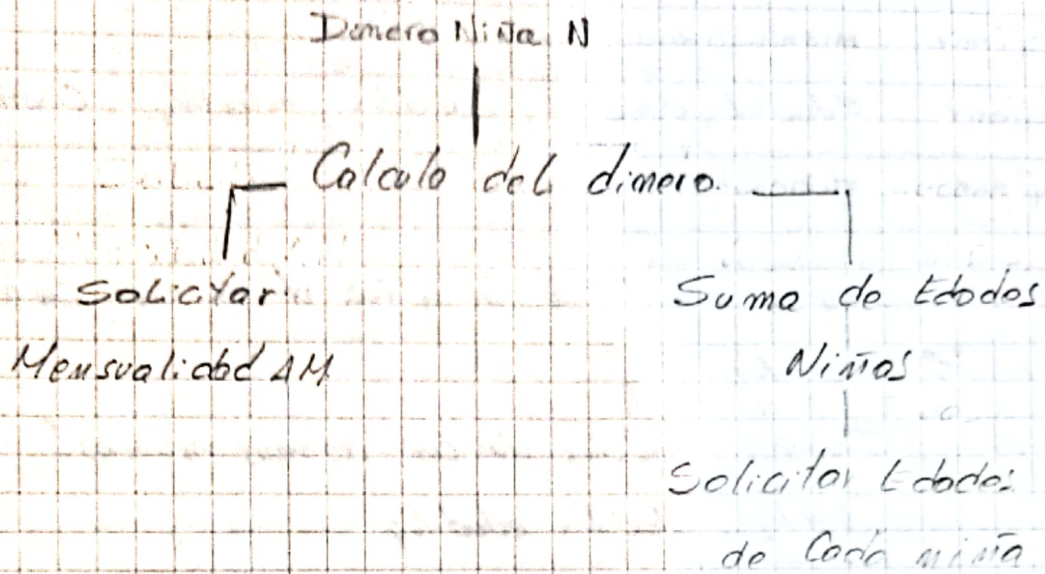 Dinero Niña N
Calculo del dinero
Solicitar
Mensualidad AM
Suma de Edades
Niñas
Solicitar Edades
de Cada niña